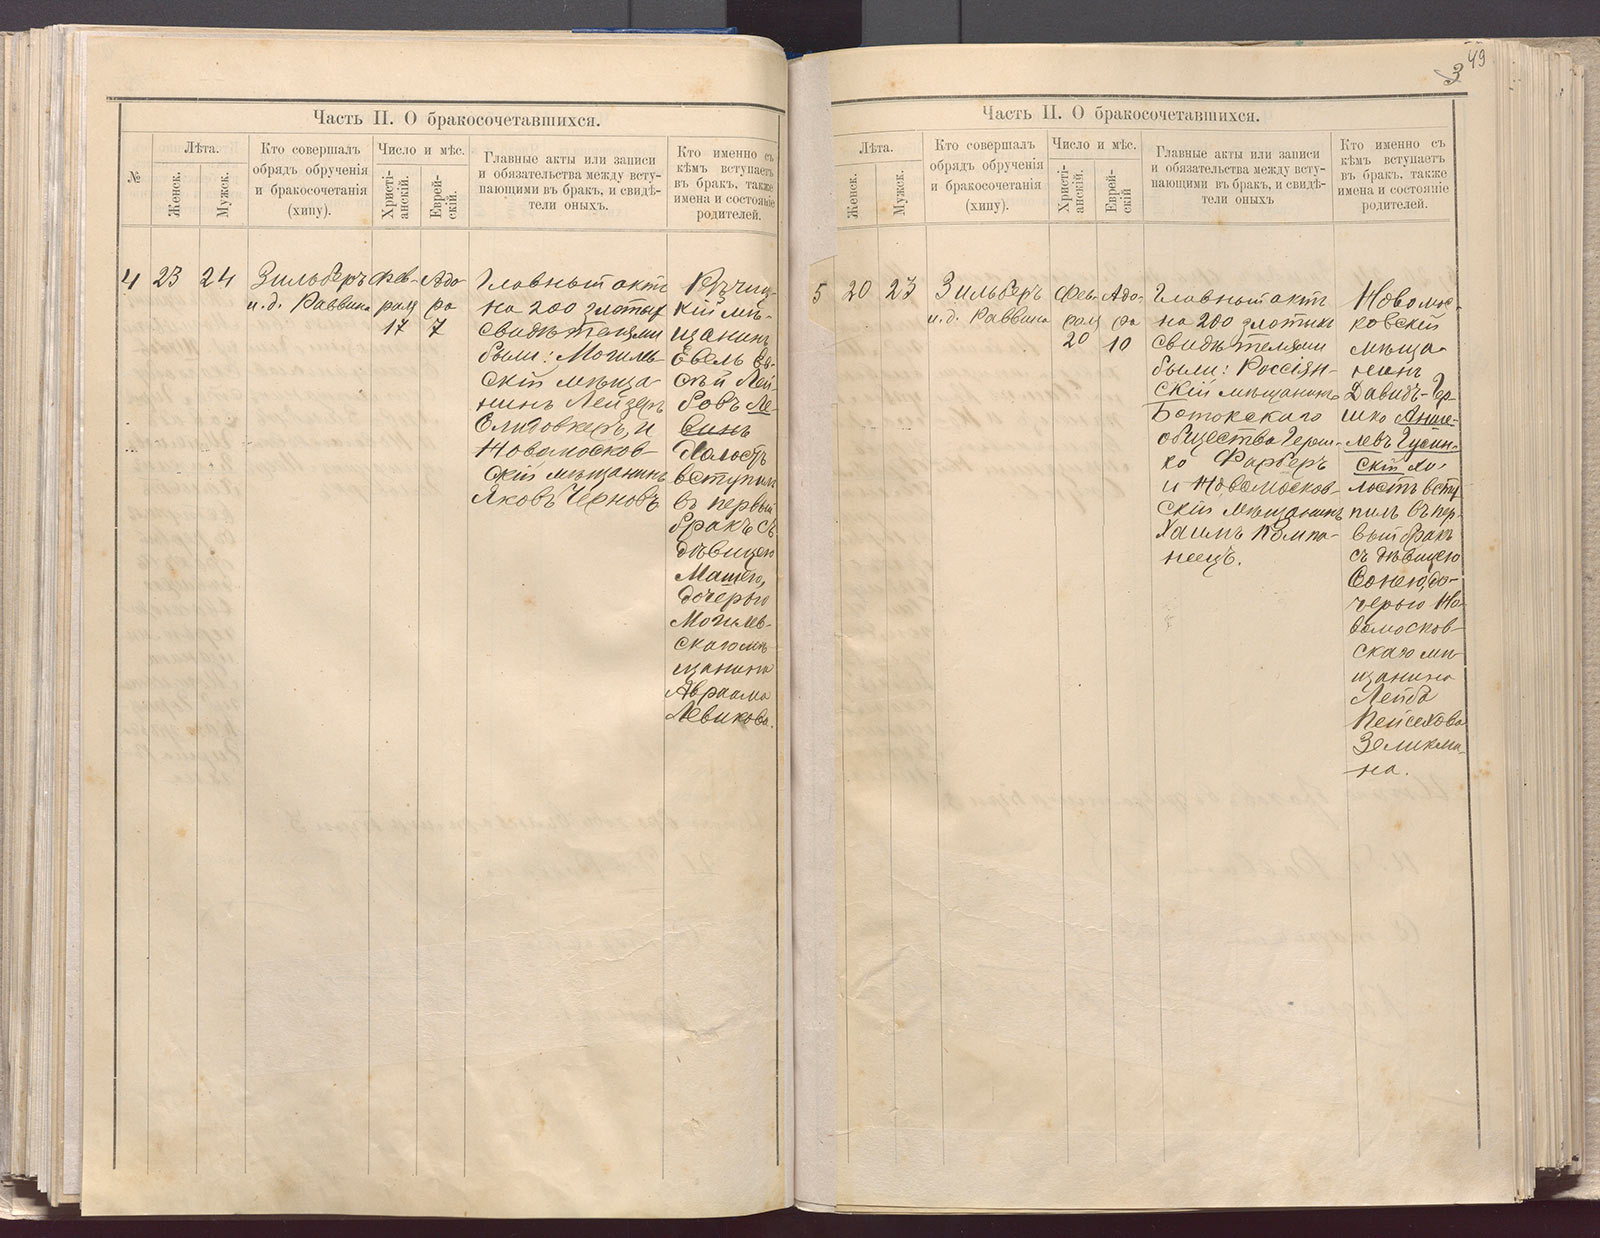 Часть II. О бракосочетавшихся.
№
Лѣта.
Женск.
Мужск.
Кто совершалъ
обрядъ обрученія
и бракосочетанія
(хипу).
Число и мѣс.
Христі-
анскій.
Еврей-
скій.
Главные акты или записи
и обязательства между всту-
пающими въ бракъ, и свидѣ-
тели оныхъ.
Кто именно съ
кѣмъ вступаетъ
въ бракъ, также
имена и состояніе
родителей.
4
23
24
Зильберъ
и. д. Раввина
Фев-
раля
17
Адо
ра
7
Главный актъ
на 200 злотых
свидѣтелями
были: Могилев
скій мѣща-
нинъ Лейзеръ
и
Новомосков-
скій мѣщанинъ
Яковъ Черновъ
Рѣчиц-
кій мѣ-
щанинъ
Евель Ев-
сѣй Лей-
бовъ Ле-
винъ
холостъ
вступил
въ первый
бракъ съ
дѣвицею
Машею,
дочерью
Могилев-
скаго мѣ-
щанина
Авраама
Левикова.
3
49
Часть II. О бракосочетавшихся.
Лѣта.
Женск.
Мужск.
Кто совершалъ
обрядъ обрученія
и бракосочетанія
(хипу).
Число и мѣс.
Христі-
анскій.
Еврей-
скій
Главные акты или записи
и обязательства между всту-
пающими въ бракъ, и свидѣ-
тели оныхъ
Кто именно съ
кѣмъ вступаетъ
въ бракъ, также
имена и состояніе
родителей.
5
20
23
Зильберъ
и. д. Раввина
Фев-
раля
20
Адо-
ра
10
Главный актъ
на 200 злотыхъ
свидѣтелями
были: Россіян-
скій мѣщанинъ
Ботокскаго
общества Герш-
ко Фарберъ
и Новомосков-
скій мѣщанинъ
Хаимъ Компа-
неецъ.
Новомос-
ковскій
мѣща-
нинъ
Давидъ-Гер-
шко Анше-
левъ Гусин-
скій хо-
лостъ всту
пилъ въ пер-
вый бракъ
съ дѣвицею
Сонею, до-
черью Но-
вомосков-
скаго мѣ-
щанина
Лейба
Пейсахова
Зеликма-
на.